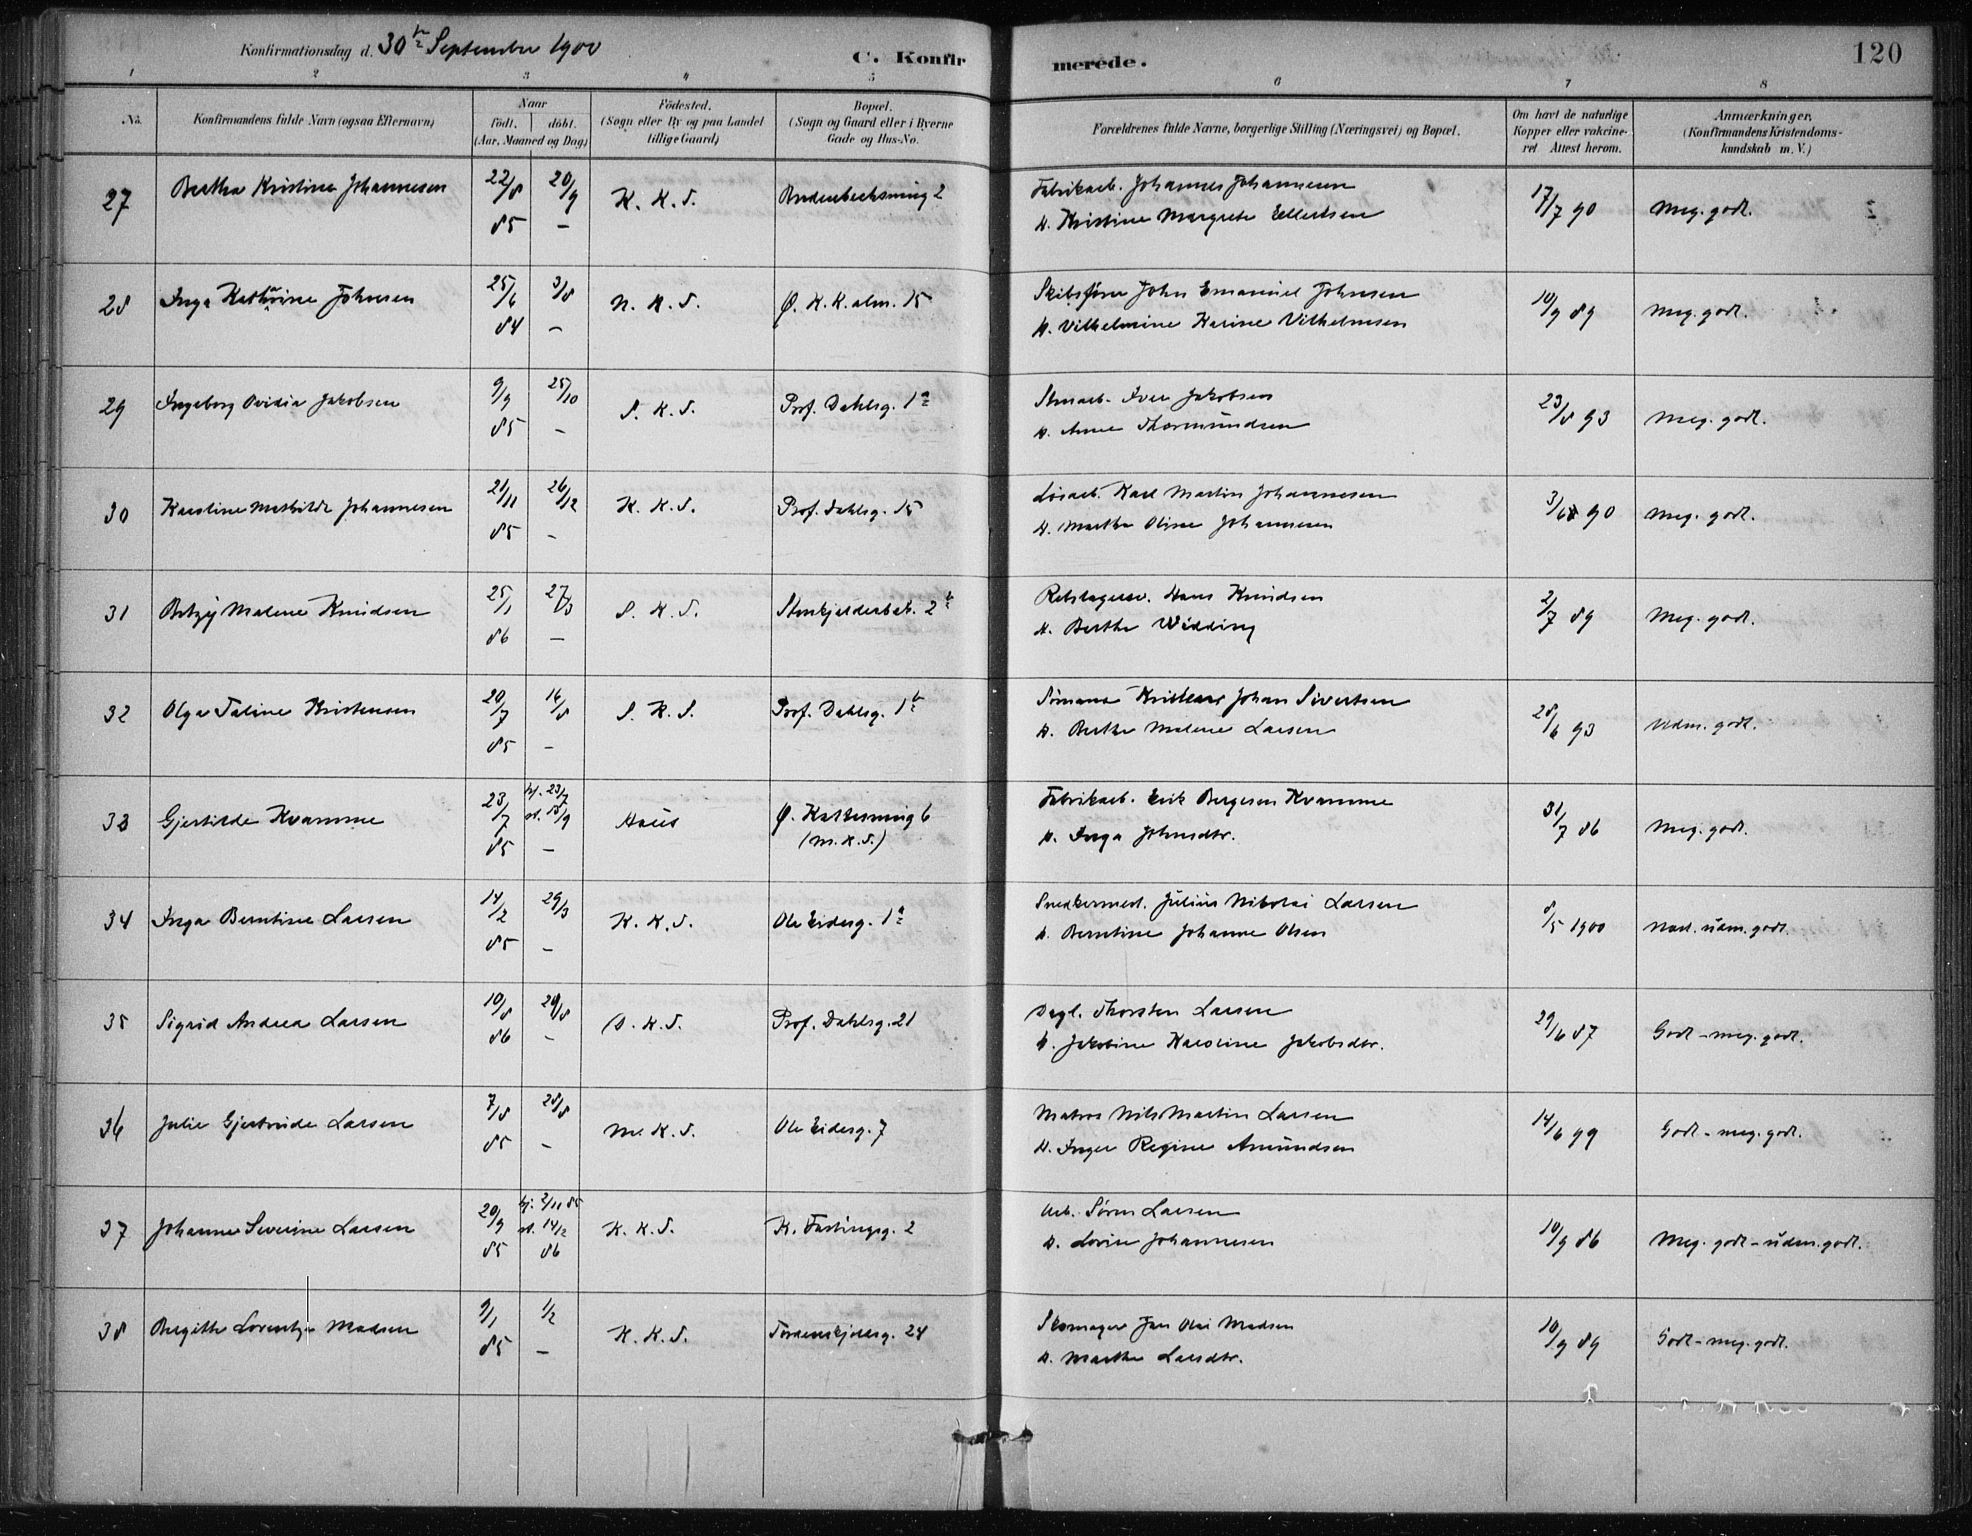 Konfirmationsdag d. 30te September 1900
C. Konfir
merede.
120
1 2 3 4 5 6 7 8
No. Konfirmandens fulde Navn (ogsaa Efternavn) Naar født. døbt. (Aar, Maaned og Dag) Fødested. (Sogn eller By og paa Landet tillige Gaard) Bopæl. (Sogn og Gaard eller i Byerne Gade og Hus-No. Forældrenes fulde Navne, borgerlige Stilling (Næringsvei) og Bopæl. Om havt de naturlige Kopper eller vakcineret Attest herom. Anmærkninger. (Konfirmandens Kristendomskundskab m. V.)
27 Bertha Kristine Johannesen 22/8 85 20/9 – K. K. S. 2 Fabrikarb. Johannes Johannesen 17/7 90 Meg. godt.
H. Kristine Margrete Ellertsen
28 Inga Kathrine Johnsen 25/6 84 3/8 – N. K. S. Ø. K. K. alm. 15 Skibsfører John Emanuel Johnsen 10/9 89 Meg. godt.
H. Vilhelmine Karine Vilhelmsen
29 Ingeborg Ovidia Jakobsen 9/9 85 25/10 – S. K. S. Prof. Dahlsg. 1a Stenarb. Iver Jakobsen 23/8 93 Meg. godt.
H. Anne Thormundsen
30 Karoline Mathilde Johannesen 21/11 85 26/12 – K. K. S. Prof. Dahlsg. 15 Løsarb. Karl Martin Johannesen 3/6 90 Meg. godt.
H. Marthe Oline Johannesen
31 Betzy Malene Knudsen 25/1 86 27/3 – S. K. S. Stenkjelderbak. 2b Hans Knudsen 2/7 89 Meg. godt.
H. Berthe Widding
32 Olga Taline Kristensen 20/7 85 16/8 – S. K. S. Prof. Dahlsg. 1b Sømand Johan Sivertsen 28/6 93 Udm. godt.
H. Berthe Malene Larsen
33 Gjertilde Kvamme 23/7 85 hj. 23/7 st. /9 – Haus Ø. 6 (M. K. S.) Fabrikarb. Erik Bergesen Kvamme 31/7 86 Meg. godt.
H. Inga Johnsdtr.
34 Inga Berntine Larsen 14/2 85 29/3 – K. K. S. Ole Eidesg. 1a Snedkermest. Julius Nikolai Larsen 8/5 1900 Næst. udm. godt.
H. Berntine Johanne Olsen
35 Sigrid Andrea Larsen 10/8 86 29/8 – D. K. S. Prof. Dahlsg. 21 Dagl. Thorsten Larsen 29/6 87 Godt – meg. godt.
H. Jakobine Karoline Jakobsdtr.
36 Julie Gjertrude Larsen 7/8 85 28/8 – M. K. S. Ole Eidesg. 7 Matros Nils Martin Larsen 14/6 99 Godt – meg. godt.
H. Inger Regine Amundsen
37 Johanne Severine Larsen 20/9 85 hj. 2/11 85 st. 14/2 86 K. K. S. K. Fastingsg. 2 Arb. Søren Larsen 10/9 86 Meg. godt – udm. godt.
H. Lovise Johannesen
38 Bergitte Lorentze Madsen 9/1 85 1/2 – K. K. S. Tordenskjoldsg. 24 Skomager Jan Olai Madsen 10/9 89 Godt – meg. godt.
H. Marthe Larsdtr.